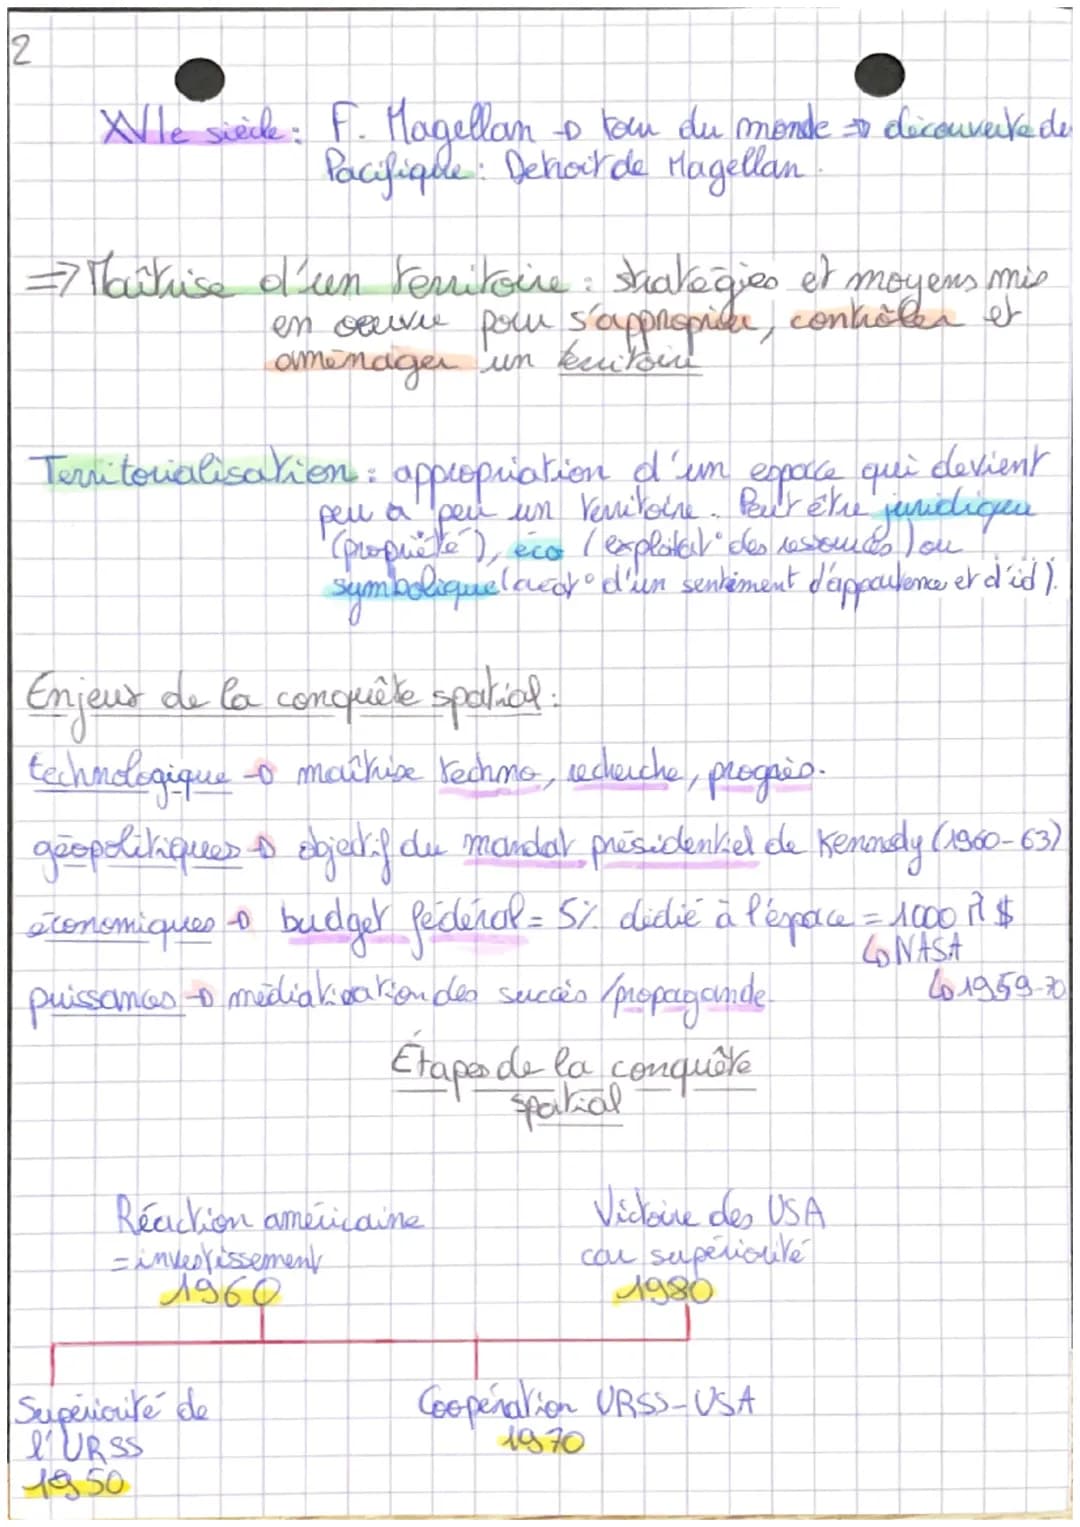 2
XVIe siècle : F. Magellan → tour du monde ⇒ découverte de
Pacifique : Detroit de Magellan.
⇒ Maîtrise d'un territoire : stratégies et moyens mis
en oeuvre pour s'approprier, contrôler et
aménager un territoire
Territorialisation : appropriation d'un espace qui devient
peu a peu un territoire. Peut être juridique
(propriété), éco (exploitat° des ressources) ou
symbolique (créat° d'un sentiment d'appartenance et d'id).
Enjeux de la conquête spatial :
technologique → maîtrise techno, recherche, progrès.
géopolitiques → objectif du mandat présidentiel de Kennedy (1960-63)
économiques → budget fédéral = 5% dédié à l'espace = 1000 M $
↳ NASA
↳ 1959-70
puissances → médiatisation des succès / propagande.
Étapes de la conquête
spatial
Réaction américaine
= investissement
1960
Victoire des USA
car supériorité
1980
Supériorité de
l'URSS
1950
Coopération URSS-USA
1970